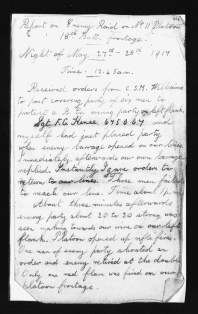 Report on Enemy Raid on No 11 Platoon
18th Batt. frontage.
Night of May 27th - 28th 1917
Time: 12.45am.
Received orders from C.S.M. Williams
to post covering party of six men to
protect a
Sgt. E. La Hence 675667 and
myself had just placed party
when enemy barrage opened on our lines
Immediately afterwards our own barrage
replied. Instantly I gave orders to
return to our lines. Three men failed
to reach our lines. Time about 1
About three minutes afterwards
enemy party about 20 to 30 strong was
seen making towards our wire on our left
flank. Platoon opened up rifle fire.
One man of enemy party shouted an
order and enemy retired at the double
Only one red flare was fired on our
Platoon frontage.